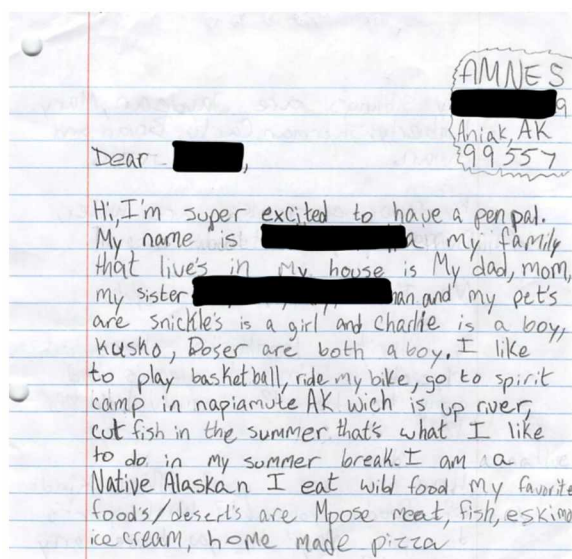 AMNES
9
Aniak, AK
99557
Dear ,
Hi, I'm super excited to have a penpal.
My name is a my family
that live's in My house is My dad, mom,
my sister han and my pet's
are snickle's is a girl and Charlie is a boy,
Kusko, Doser are both a boy. I like
to play basketball, ride my bike, go to spirit
camp in napiamute AK wich is up river,
cut fish in the summer that's what I like
to do in my summer break. I am a
Native Alaskan I eat wild food my favorite
food's/desert's are Moose meat, fish, eskimo
ice cream, home made pizza